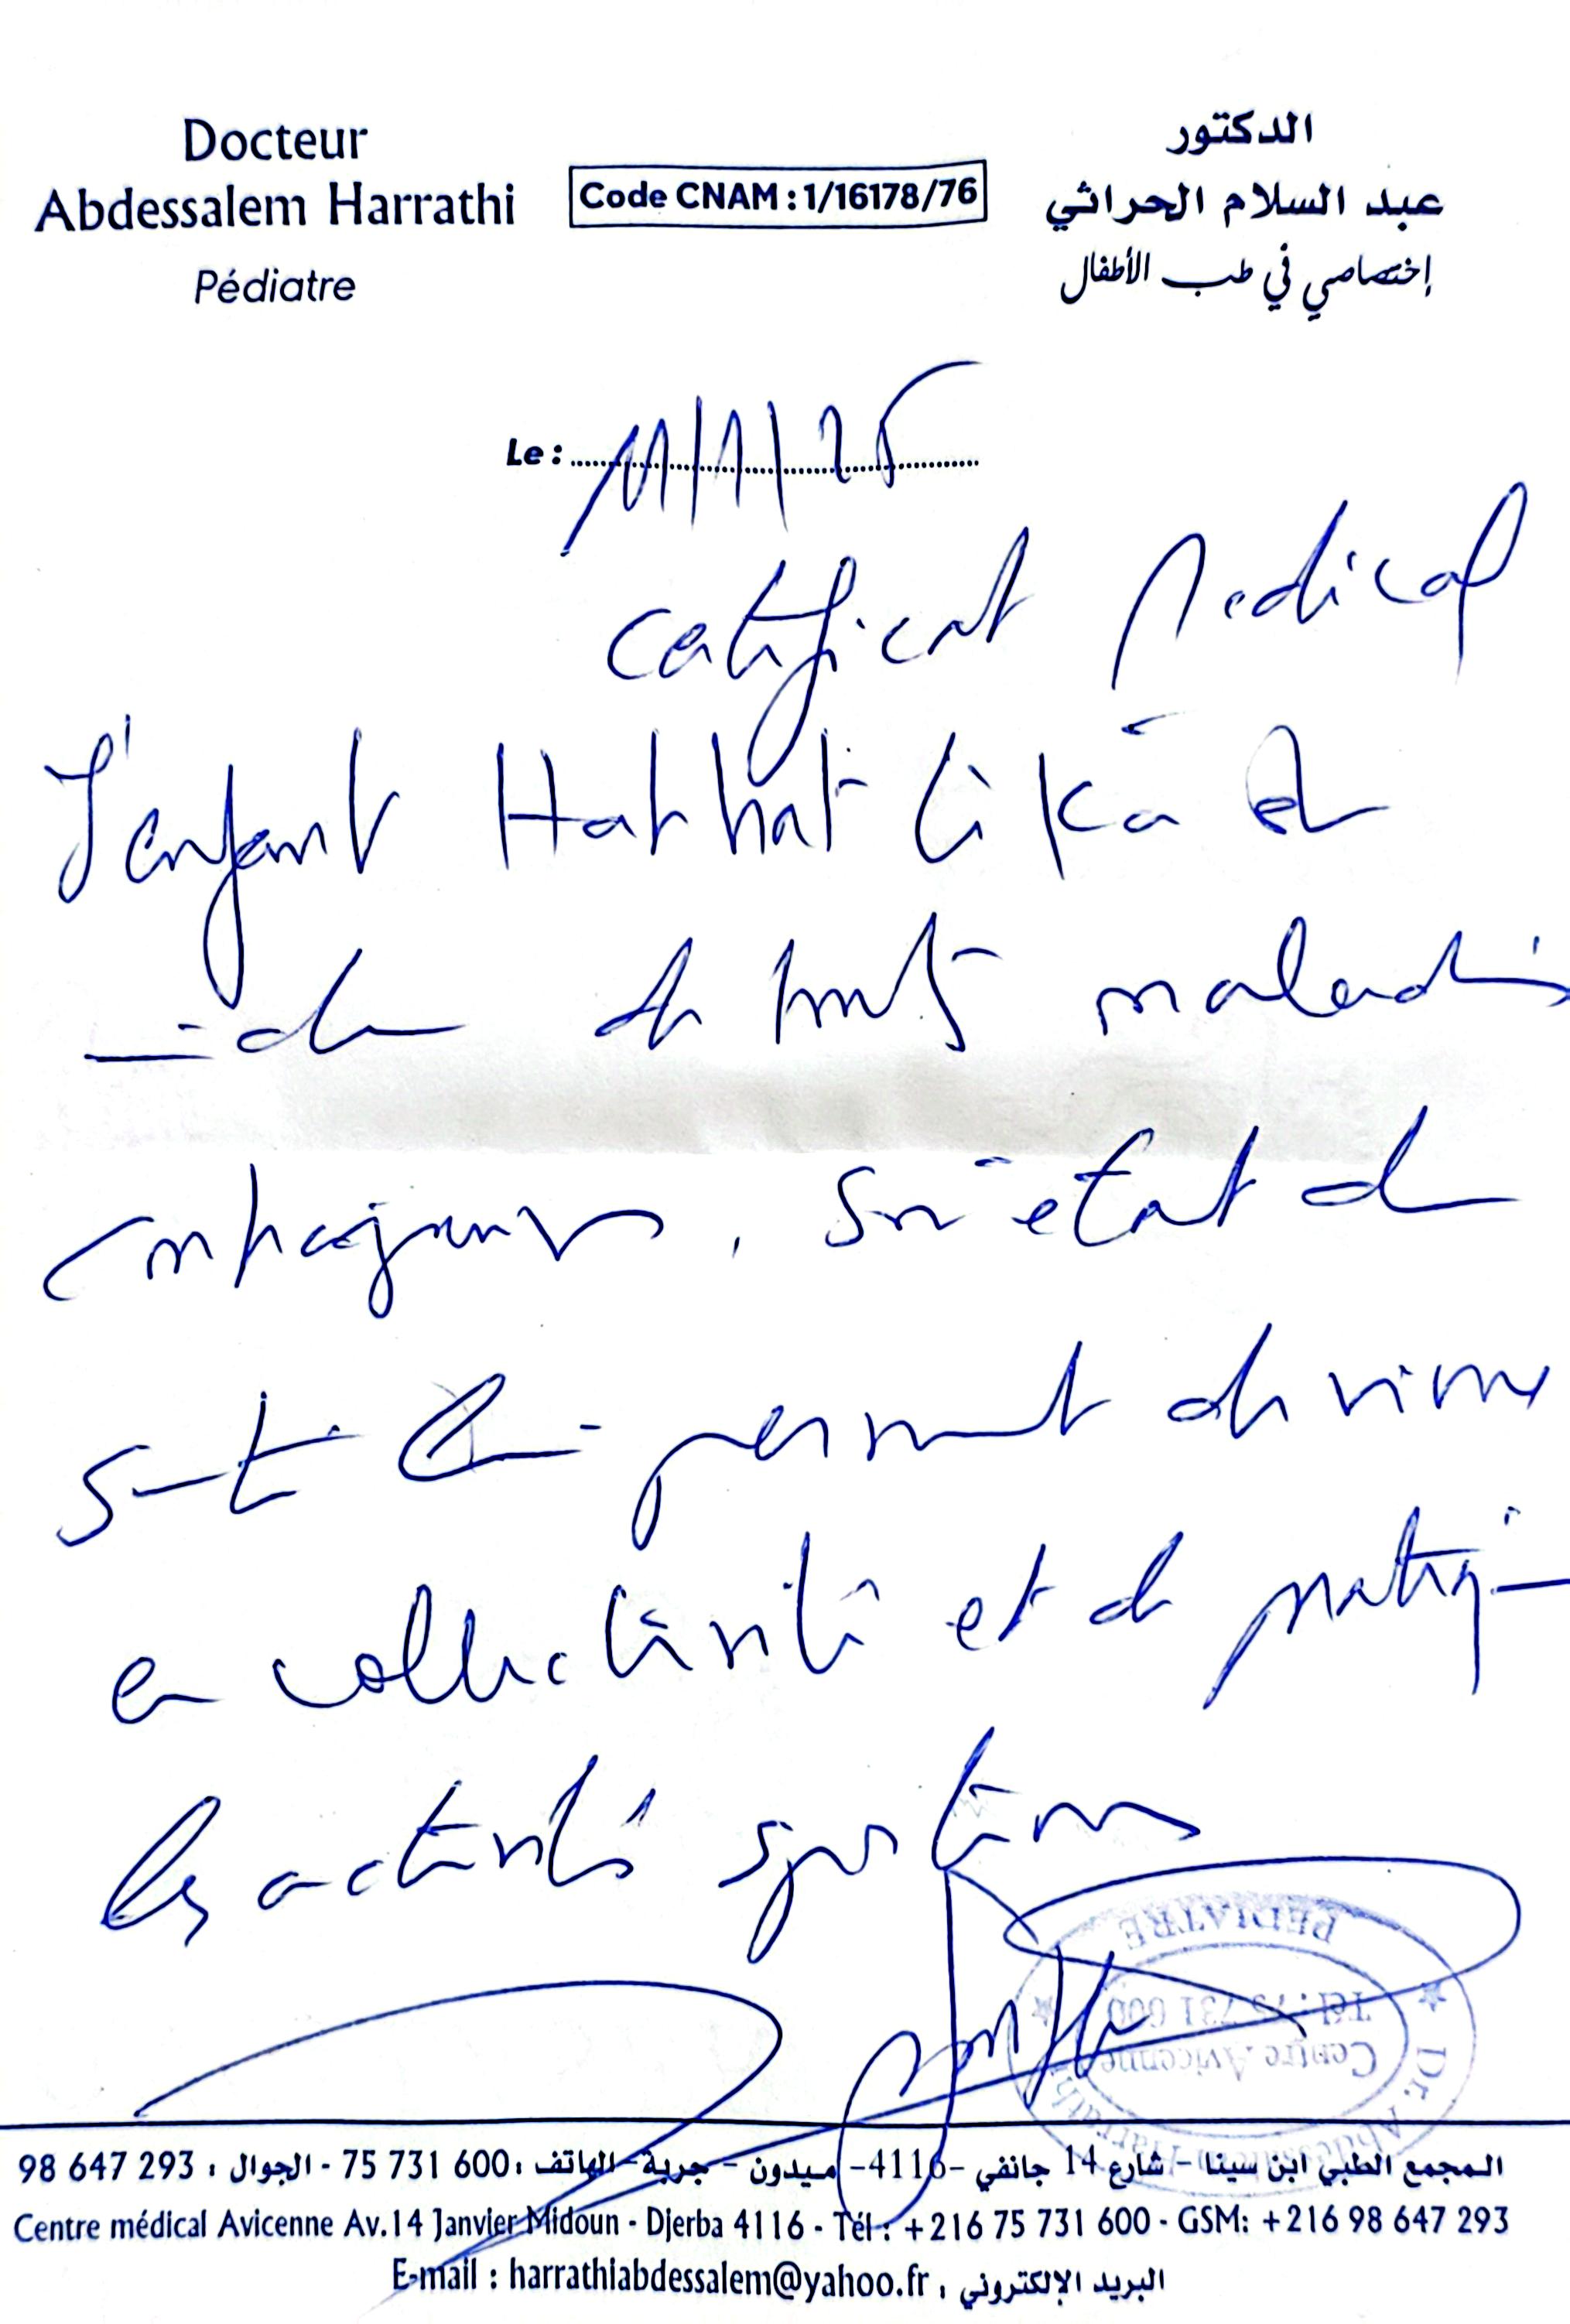 Docteur
Abdessalem Harrathi
Pédiatre
Code CNAM : 1/16178/76
الدكتور
عبد السلام الحراثي
إختصاصي في طب الأطفال
Le :
Certificat Medical
L'enfant est
de toutes maladies
contagieuses, son état de
santé lui permet de vivre
en collectivité et de pratiquer
les activités sportives
PEDIATRE
Tél : 75 731 600
Centre Avicenne
Dr. Abdessalem Harrathi
المجمع الطبي ابن سينا - شارع 14 جانفي -4116- ميدون - جربة - الهاتف : 600 731 75 - الجوال : 293 647 98
Centre médical Avicenne Av.14 Janvier Midoun - Djerba 4116 - Tél : +216 75 731 600 - GSM: +216 98 647 293
E-mail : harrathiabdessalem@yahoo.fr : البريد الإلكتروني